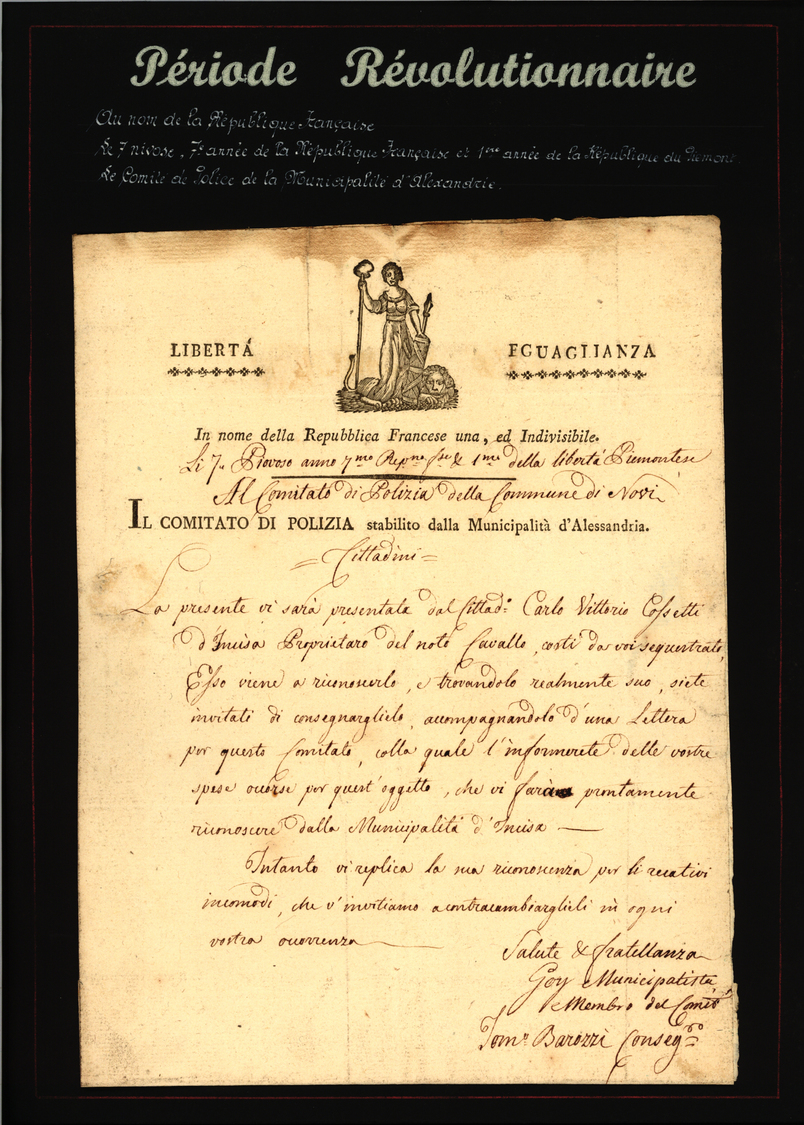 Période Révolutionnaire
Au nom de la République Française
Le 7 nivose, 7e année de la République Française et 1ère année de la République du Piemont.
Le Comité de Police de la Municipalité d'Alexandrie.
LIBERTÁ
EGUAGLIANZA
In nome della Repubblica Francese una, ed Indivisibile.
Li 7. Piovoso anno 7mo Repno fse & 1mo della libertá Piemontese
Al Comitato di Polizia della Commune di Novi
IL COMITATO DI POLIZIA stabilito dalla Municipalità d'Alessandria.
= Cittadini =
La presente vi sarà presentata dal Cittado Carlo Vittorio Cossetti
d'Incisa Proprietaro del noto Cavallo, costì da voi sequestrato,
Esso viene a riconoscerlo, e trovandolo realmente suo, siete
invitati di consegnarglielo, accompagnandolo d'una Lettera
per questo Comitato, colla quale l'informerete delle vostre
spese occorse per quest'oggetto, che vi farà prontamente
riconoscere dalla Municipalità d'Incisa —
Intanto vi replica la sua riconoscenza per li recativi
incomodi, che v'invitiamo a contracambiarglieli in ogni
vostra occorrenza
Salute & fratellanza
Goy Municipalista
Membro del Comitº
Tomº Barozzi Consegrº